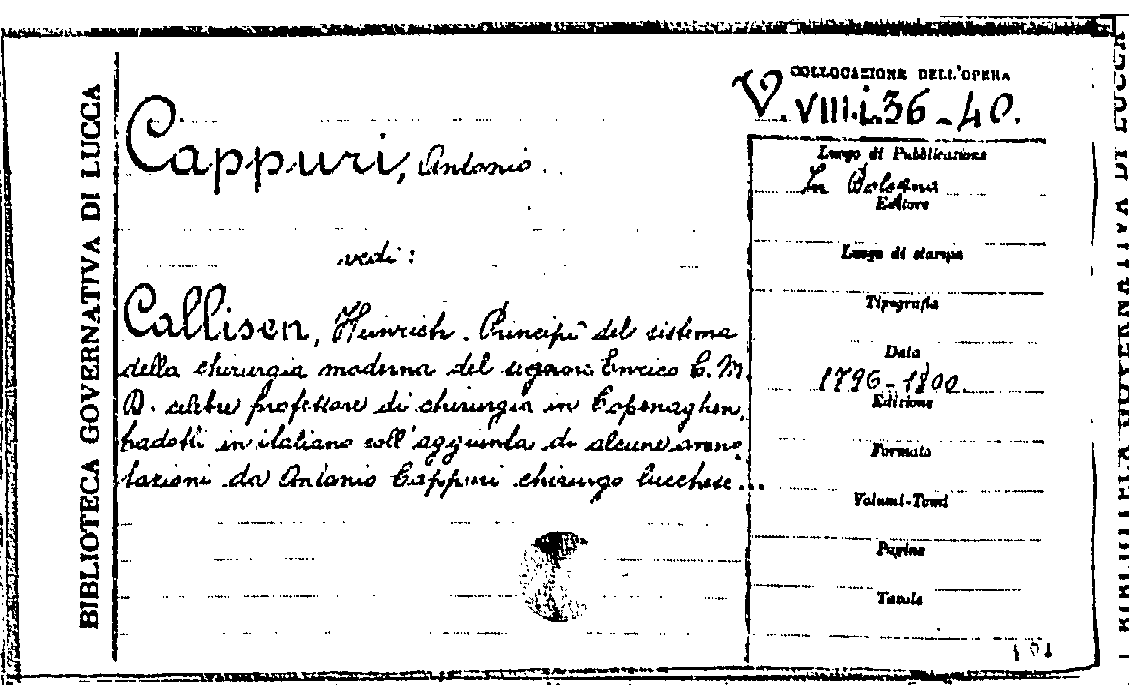 BIBLIOTECA GOVERNATIVA DI LUCCA
COLLOCAZIONE DELL'OPERA
V. VIII. i. 36-40.
Cappuri, Antonio.
vedi:
Callisen, Heinrich. Principi del sistema
della chirurgia moderna del signor Enrico C. M.
D. celebre professore di chirurgia in Copenaghen,
tradotti in italiano coll'aggiunta di alcune anno-
tazioni da Antonio Cappuri chirurgo lucchese...
Luogo di Pubblicazione
In Bologna
Editore
Luogo di stampa
Tipografia
Data
1796-1800.
Edizione
Formato
Volumi-Tomi
Pagine
Tavole
BIBLIOTECA GOVERNATIVA DI LUCCA